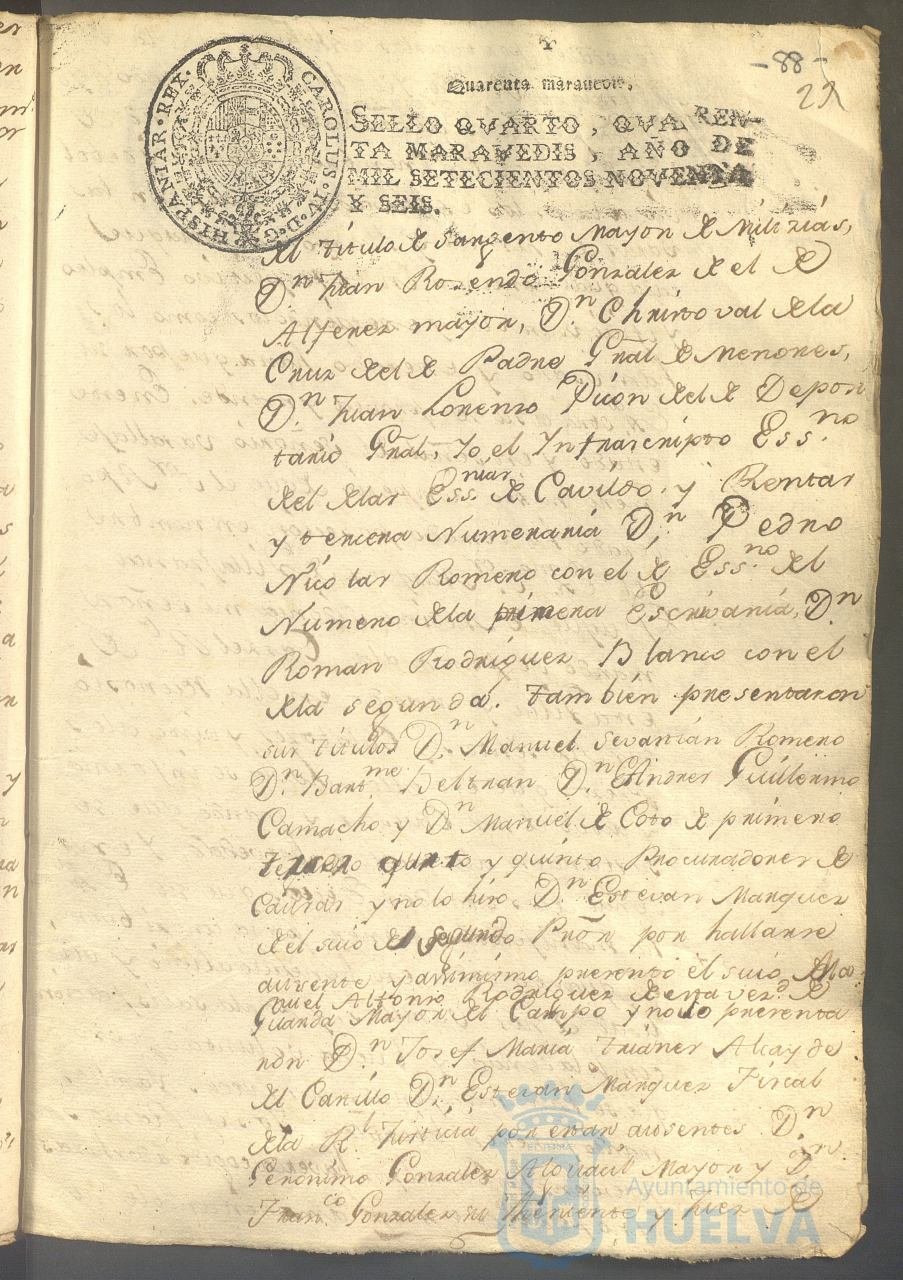 - 88 -
29
Quarenta maravedis.
SELLO QVARTO, QVAREN-
TA MARAVEDIS, AÑO DE
MIL SETECIENTOS NOVENTA
Y SEIS.
CAROLUS IV D G HISPANIAR REX
del titulo de Sargento Mayor de Milizias,
Dn. Juan Rosendo Gonzalez de el de
Alferez mayor, Dn Christoval de la
Cruz del de Padre Gral de Menores,
Dn. Juan Lorenzo Pion del de Depon
tario Gral, Yo el Infrascripto Essno
del de las Essnias de Cavildo, y Rentas
y tercera Numeraria Dn. Pedro
Nicolas Romero con el de Essno del
Numero de la primera Escrivania, Dn
Roman Rodriguez Blanco con el
de la segunda. tambien presentaron
sus titulos Dn. Manuel Sevarian Romero
Dn. Bartme. Beltran Dn. Andres Guillermo
Camacho y Dn Manuel de Coto de primero
tercero quarto y quinto, Procuradores de
Causas y no lo hiso Dn Estevan Marquez
del suio de segundo Pror por hallarse
ausente y assimismo presentó el suio Ma
nuel Alfonso Rodriguez de esta vezd. de
Guarda Mayor del Campo y no lo presenta
ron Dn. Josef Maria Trianes Alcayde
del Castillo Dn. Estevan Marquez Fiscal
de la Rl. Justicia por estar ausentes Dn
Geronimo Gonzalez Alguacil Mayor y Dn.
Franco Gonzalez su Theniente y Juez de
Ayuntamiento de
HUELVA